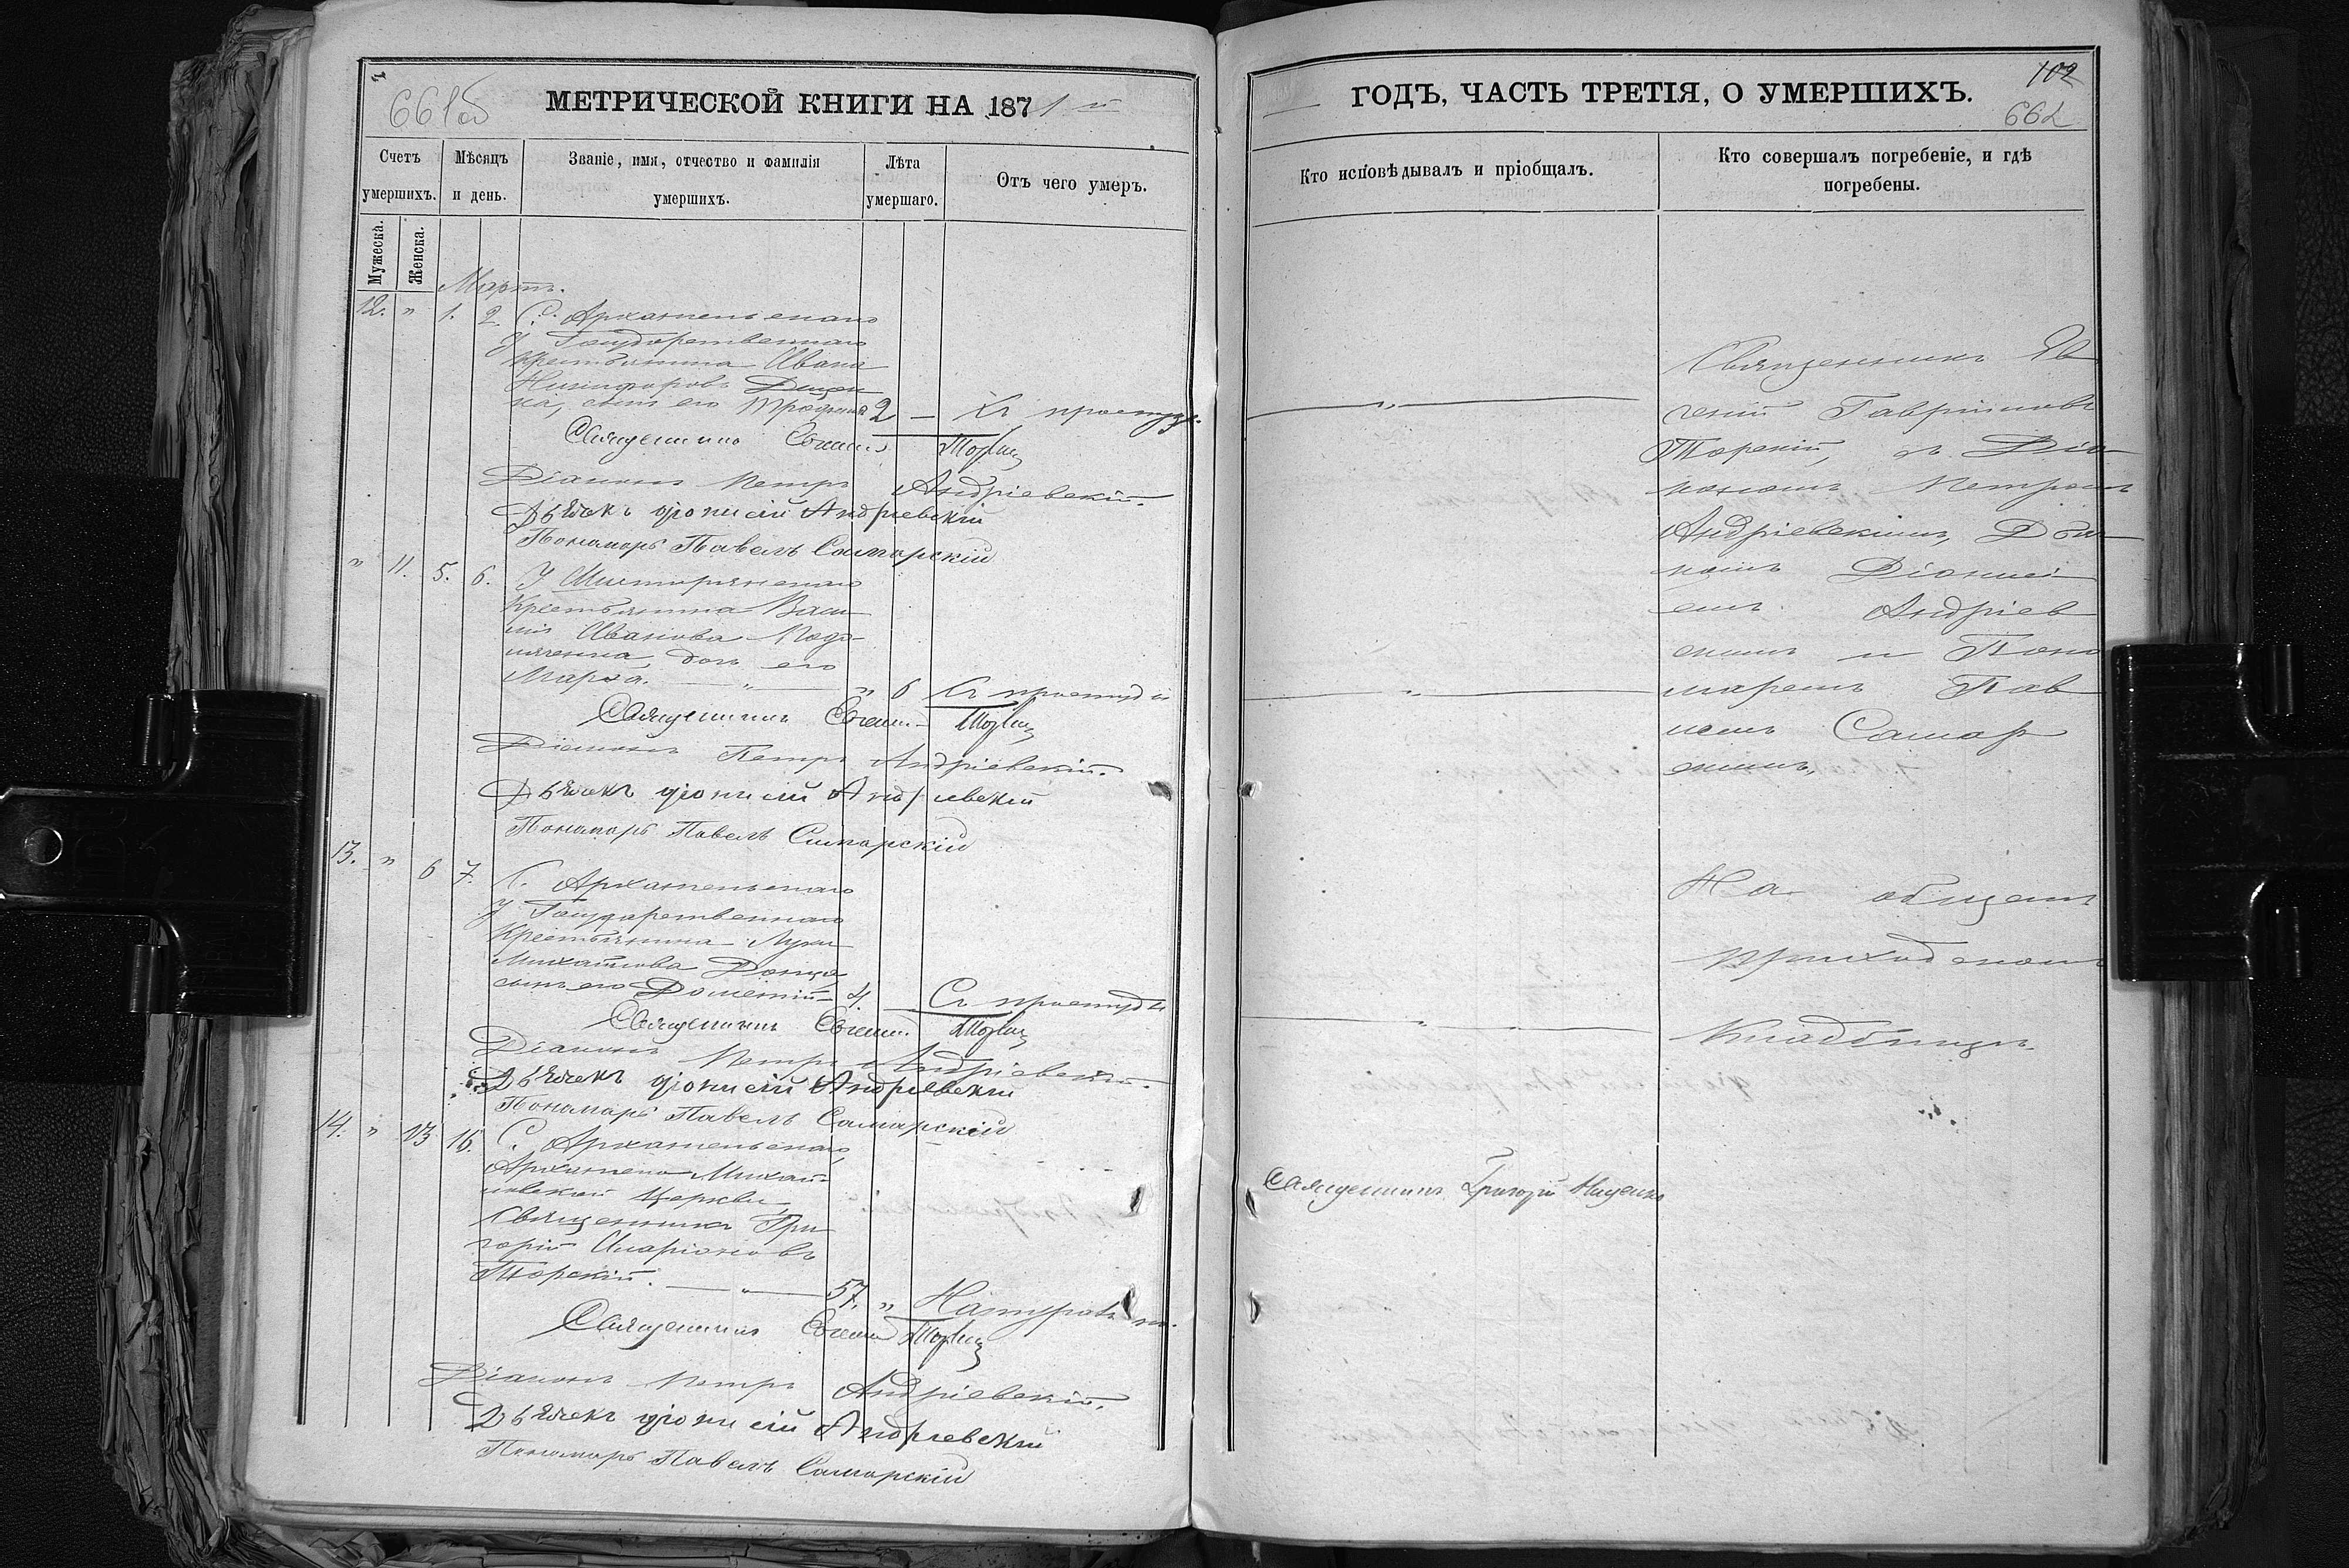 661об МЕТРИЧЕСКОЙ КНИГИ НА 1871й
Счетъ умершихъ.
Мѣсяцъ и день.
Званіе, имя, отчество и фамилія умершихъ.
Лѣта умершаго.
Отъ чего умеръ.
Мужеска.
Женска.
Мартъ.
12. " 1. 2. С. Архангельскаго
Государственнаго
Крестьянина Ивана
Никифорова
сынъ его Трофимъ 2 — Отъ простуды
Священникъ Евгеній Торскій
Діаконъ Петръ Андріевскій.
Дьячекъ Діонисій Андріевскій
Пономарь Павелъ Самарскій
" 11. 5. 6.
Крестьянина Васи
лія Иванова
дочь его
Марѳа. — " — " 6 Отъ простуды
Священникъ Евгеній Торскій
Діаконъ Петръ Андріевскій.
Дьячекъ Діонисій Андріевскій
Пономарь Павелъ Самарскій
13. " 6 7. С. Архангельскаго
Государственнаго
Крестьянина Луки
Михайлова Донца
сынъ его Дометій 4. — Отъ простуды
Священникъ Евгеній Торскій
Діаконъ Петръ Андріевскій.
Дьячекъ Діонисій Андріевскій
Пономарь Павелъ Самарскій
14. " 13 16. С. Архангельскаго,
Архангело Михай-
ловской Церкви,
Священникъ Гри
горій Иларіоновъ
Торскій. — " — 57. "
Священникъ Евгеній Торскій
Діаконъ Петръ Андріевскій.
Дьячекъ Діонисій Андріевскій
Пономарь Павелъ Самарскій
ГОДЪ, ЧАСТЬ ТРЕТІЯ, О УМЕРШИХЪ.
102
662
Кто исповѣдывалъ и пріобщалъ.
Кто совершалъ погребеніе, и гдѣ
погребены.
Священникъ Ев
геній Гавріиловъ
Торскій, съ Діа
кономъ Петромъ
Андріевскимъ, Дья
комъ Діонисі
емъ Андріев
скимъ и Поно
маремъ Пав
ломъ Самар
скимъ,
На общемъ
приходскомъ
Кладбищѣ.
Священникъ Григорій